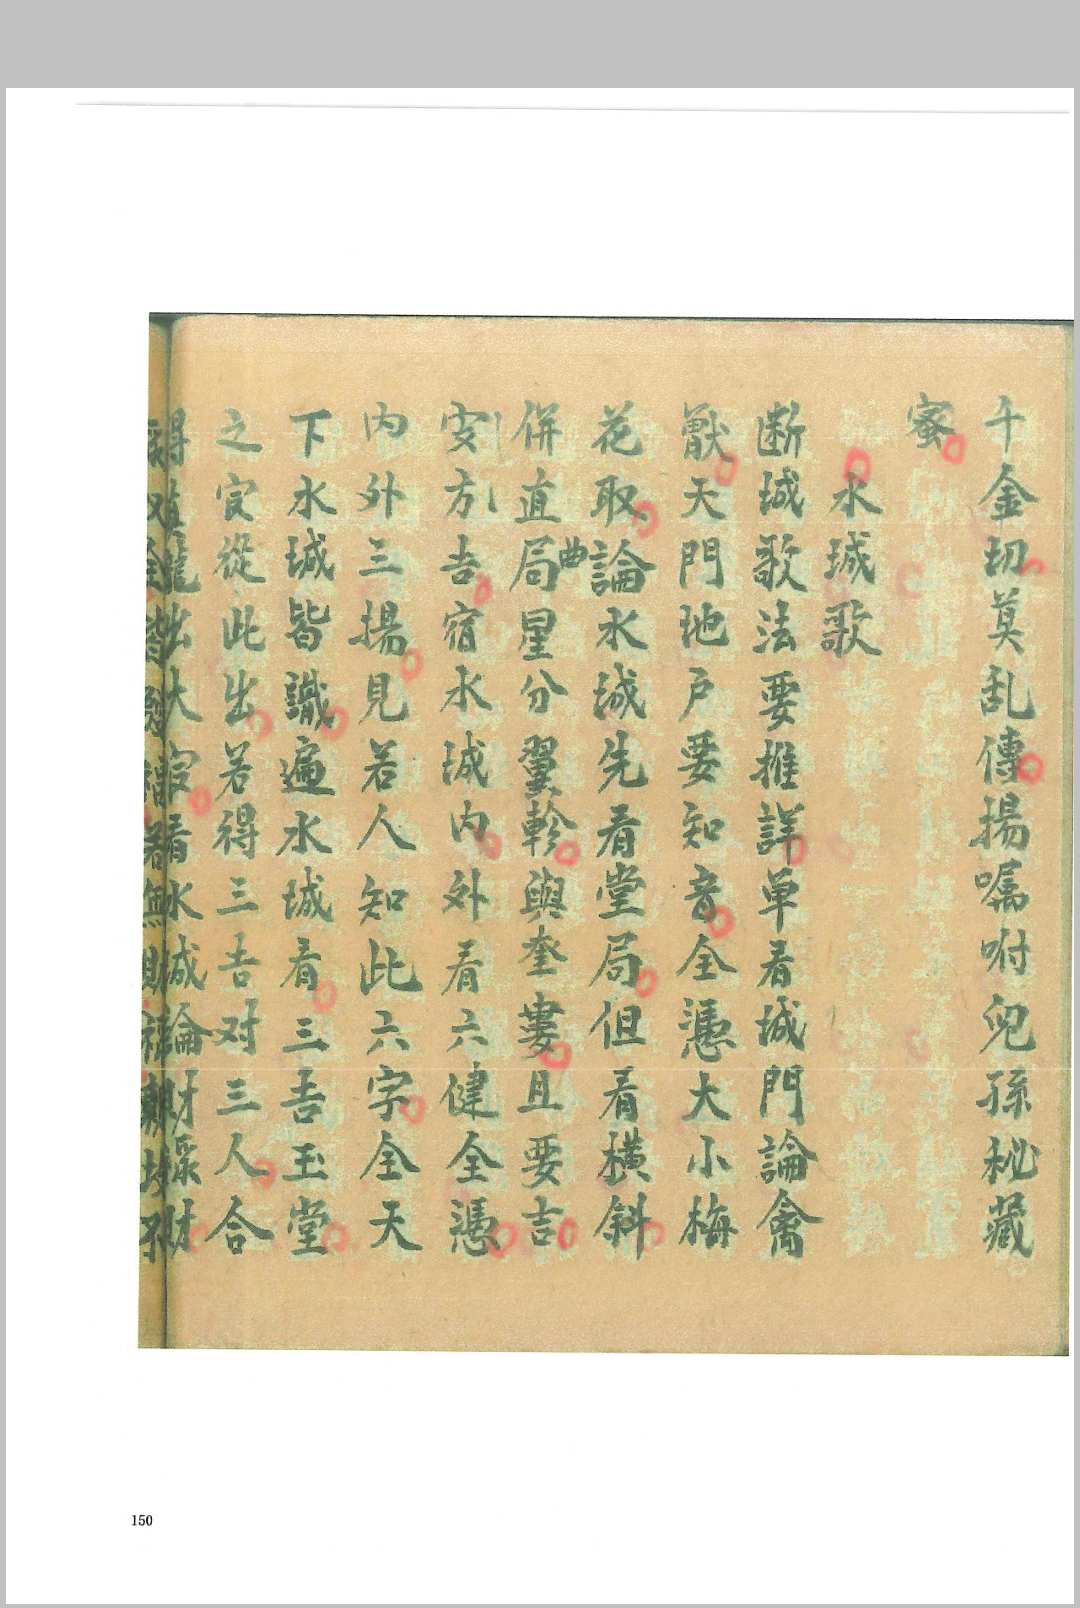 千金切莫乱傳揚嘱咐兒孫秘藏
蜜
水城歌
断城歌法要推詳单看城門論禽
獸天門地户要知音全憑大小梅
花取論水城先看堂局但看橫斜
併直曲局星分翼軫與奎婁且要吉
安方吉宿水城内外看六健全憑
内外三揚見若人知此六字全天
下水城皆識遍水城看三吉玉堂
之官從此出若得三吉对三人合
得真龍出大官看水城論財禄財
150